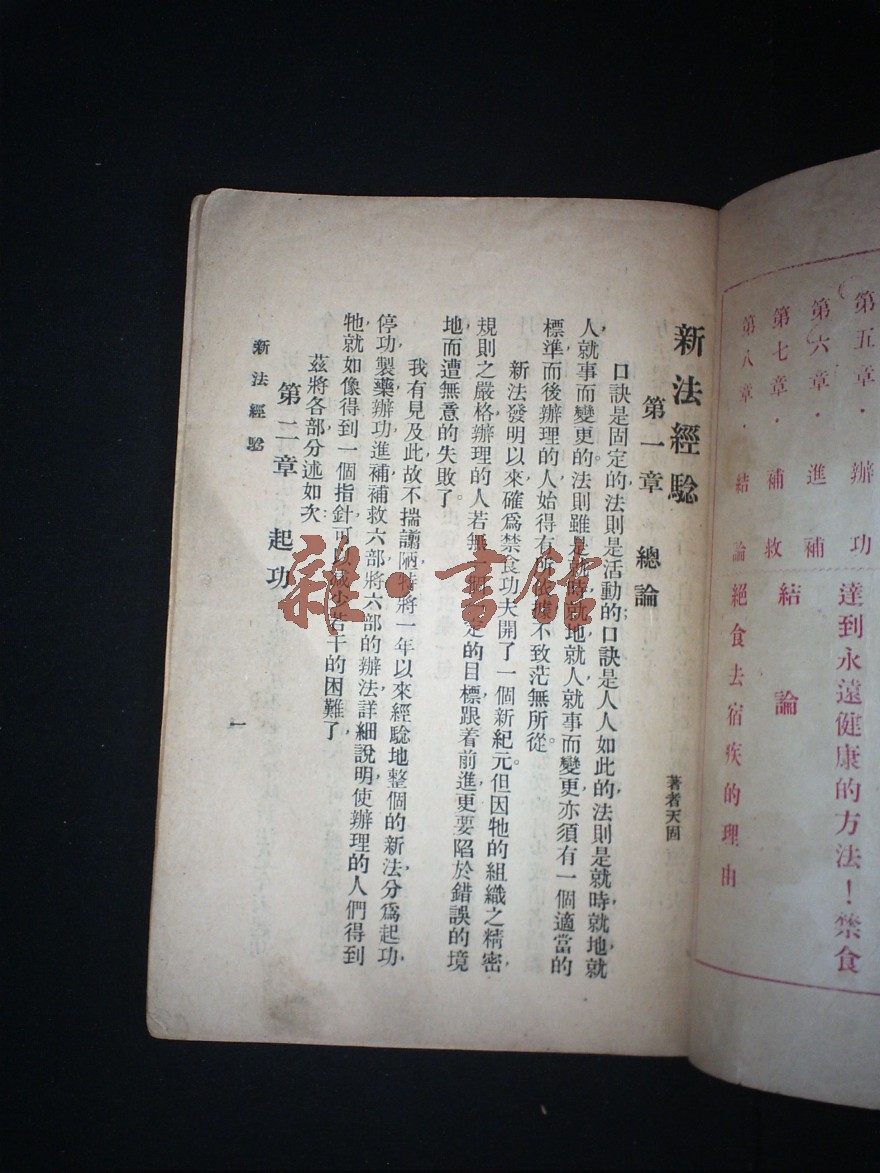 第五章·辦功
第六章·進補
第七章·補救
第八章·結論
達到永遠健康的方法！禁食
結論
絕食去宿疾的理由
新法經驗
著者天固
第一章 總論
口訣是固定的，法則是活動的；口訣是人人如此的，法則是就時就地就
人，就事而變更的。法則雖是就時，就地，就人，就事而變更，亦須有一個適當的
標準，而後辦理的人始得有所依據，不致茫無所從。
新法發明以來，確爲禁食功夫開了一個新紀元，但因牠的組織之精密，
規則之嚴格，辦理的人若無定的目標跟着前進，更要陷於錯誤的境
地，而遭無意的失敗了。
我有見及此，故不揣譾陋，特將一年以來經驗地整個的新法分爲起功，
停功，製藥，辦功，進補，補救六部，將六部的辦法，詳細說明，使辦理的人們得到
牠，就如像得到一個指針，可以減少若干的困難了，
茲將各部分述如次：
第二章 起功
新法經驗
一
雜·書館